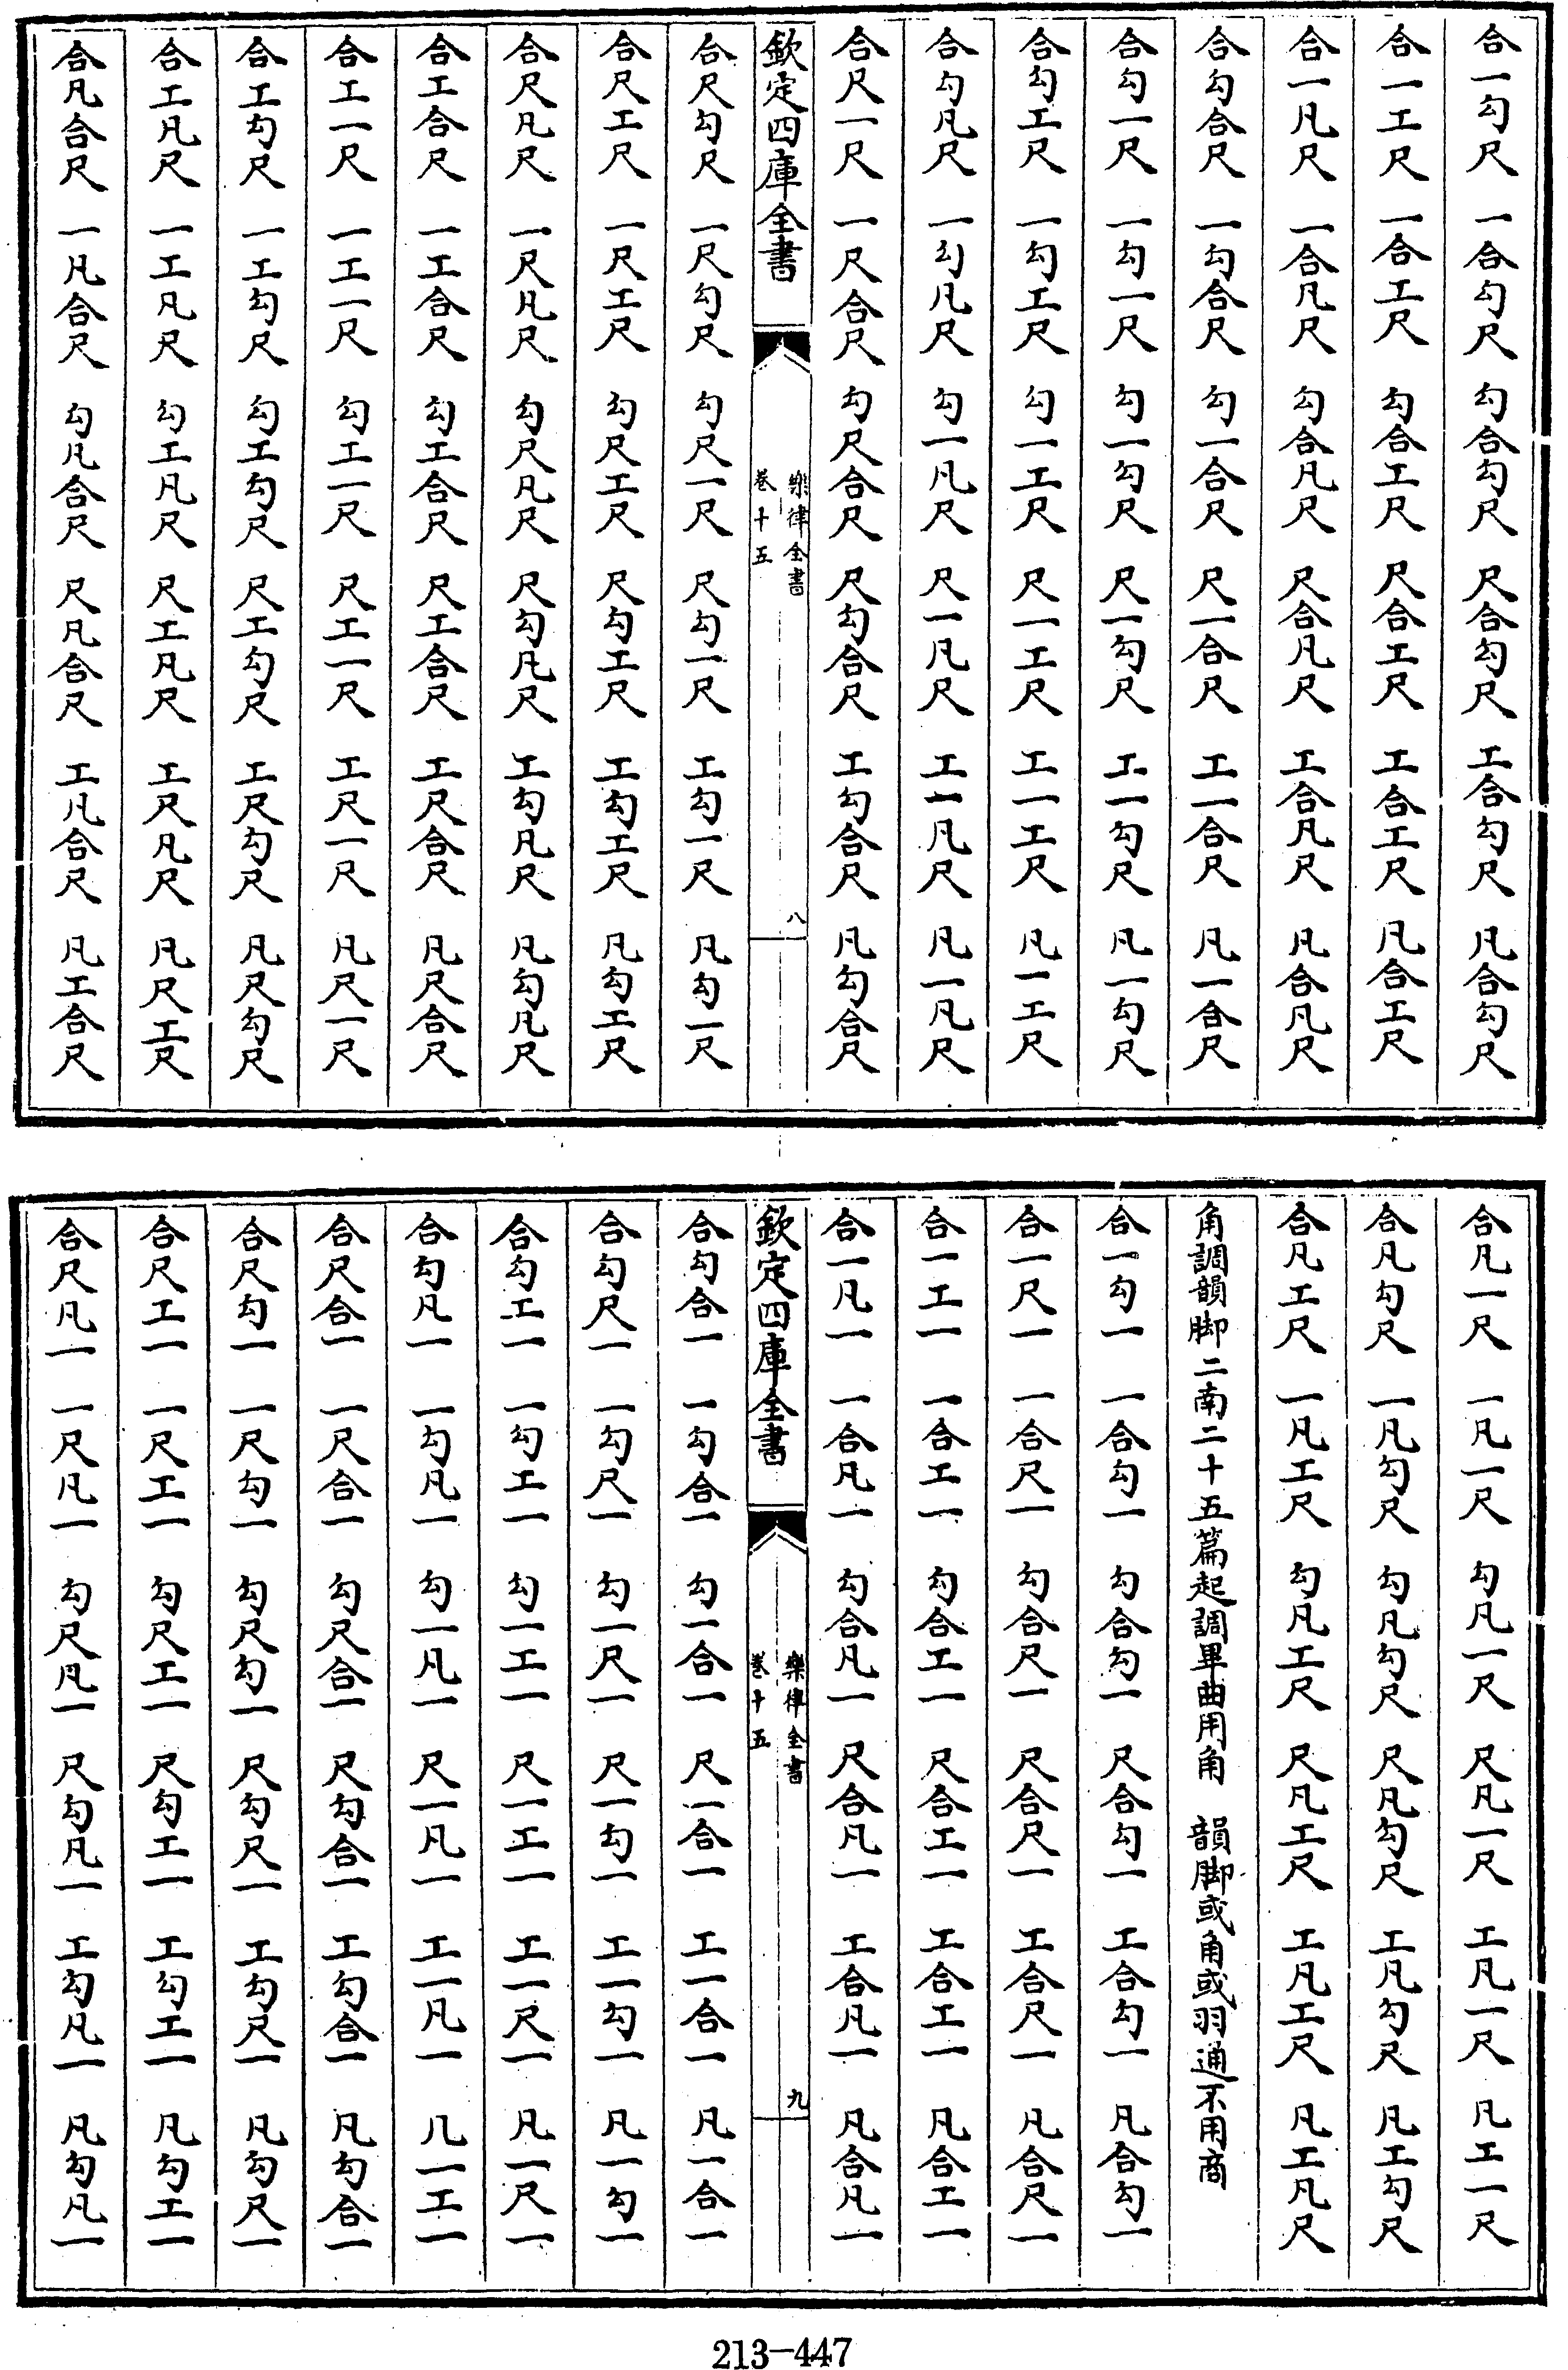 合一勾尺 一合勾尺 勾合勾尺 尺合勾尺 工合勾尺 凡合勾尺
合一工尺 一合工尺 勾合工尺 尺合工尺 工合工尺 凡合工尺
合一凡尺 一合凡尺 勾合凡尺 尺合凡尺 工合凡尺 凡合凡尺
合勾合尺 一勾合尺 勾一合尺 尺一合尺 工一合尺 凡一合尺
合勾一尺 一勾一尺 勾一勾尺 尺一勾尺 工一勾尺 凡一勾尺
合勾工尺 一勾工尺 勾一工尺 尺一工尺 工一工尺 凡一工尺
合勾凡尺 一勾凡尺 勾一凡尺 尺一凡尺 工一凡尺 凡一凡尺
合尺一尺 一尺合尺 勾尺合尺 尺勾合尺 工勾合尺 凡勾合尺
欽定四庫全書
樂律全書
卷十五
八
合尺勾尺 一尺勾尺 勾尺一尺 尺勾一尺 工勾一尺 凡勾一尺
合尺工尺 一尺工尺 勾尺工尺 尺勾工尺 工勾工尺 凡勾工尺
合尺凡尺 一尺凡尺 勾尺凡尺 尺勾凡尺 工勾凡尺 凡勾凡尺
合工合尺 一工合尺 勾工合尺 尺工合尺 工尺合尺 凡尺合尺
合工一尺 一工一尺 勾工一尺 尺工一尺 工尺一尺 凡尺一尺
合工勾尺 一工勾尺 勾工勾尺 尺工勾尺 工尺勾尺 凡尺勾尺
合工凡尺 一工凡尺 勾工凡尺 尺工凡尺 工尺凡尺 凡尺工尺
合凡合尺 一凡合尺 勾凡合尺 尺凡合尺 工凡合尺 凡工合尺
合凡一尺 一凡一尺 勾凡一尺 尺凡一尺 工凡一尺 凡工一尺
合凡勾尺 一凡勾尺 勾凡勾尺 尺凡勾尺 工凡勾尺 凡工勾尺
合凡工尺 一凡工尺 勾凡工尺 尺凡工尺 工凡工尺 凡工凡尺
角調韻脚二南二十五篇起調畢曲用角 韻脚或角或羽通不用商
合一勾一 一合勾一 勾合勾一 尺合勾一 工合勾一 凡合勾一
合一尺一 一合尺一 勾合尺一 尺合尺一 工合尺一 凡合尺一
合一工一 一合工一 勾合工一 尺合工一 工合工一 凡合工一
合一凡一 一合凡一 勾合凡一 尺合凡一 工合凡一 凡合凡一
欽定四庫全書
樂律全書
卷十五
九
合勾合一 一勾合一 勾一合一 尺一合一 工一合一 凡一合一
合勾尺一 一勾尺一 勾一尺一 尺一勾一 工一勾一 凡一勾一
合勾工一 一勾工一 勾一工一 尺一工一 工一尺一 凡一尺一
合勾凡一 一勾凡一 勾一凡一 尺一凡一 工一凡一 几一工一
合尺合一 一尺合一 勾尺合一 尺勾合一 工勾合一 凡勾合一
合尺勾一 一尺勾一 勾尺勾一 尺勾尺一 工勾尺一 凡勾尺一
合尺工一 一尺工一 勾尺工一 尺勾工一 工勾工一 凡勾工一
合尺凡一 一尺凡一 勾尺凡一 尺勾凡一 工勾凡一 凡勾凡一
213-447